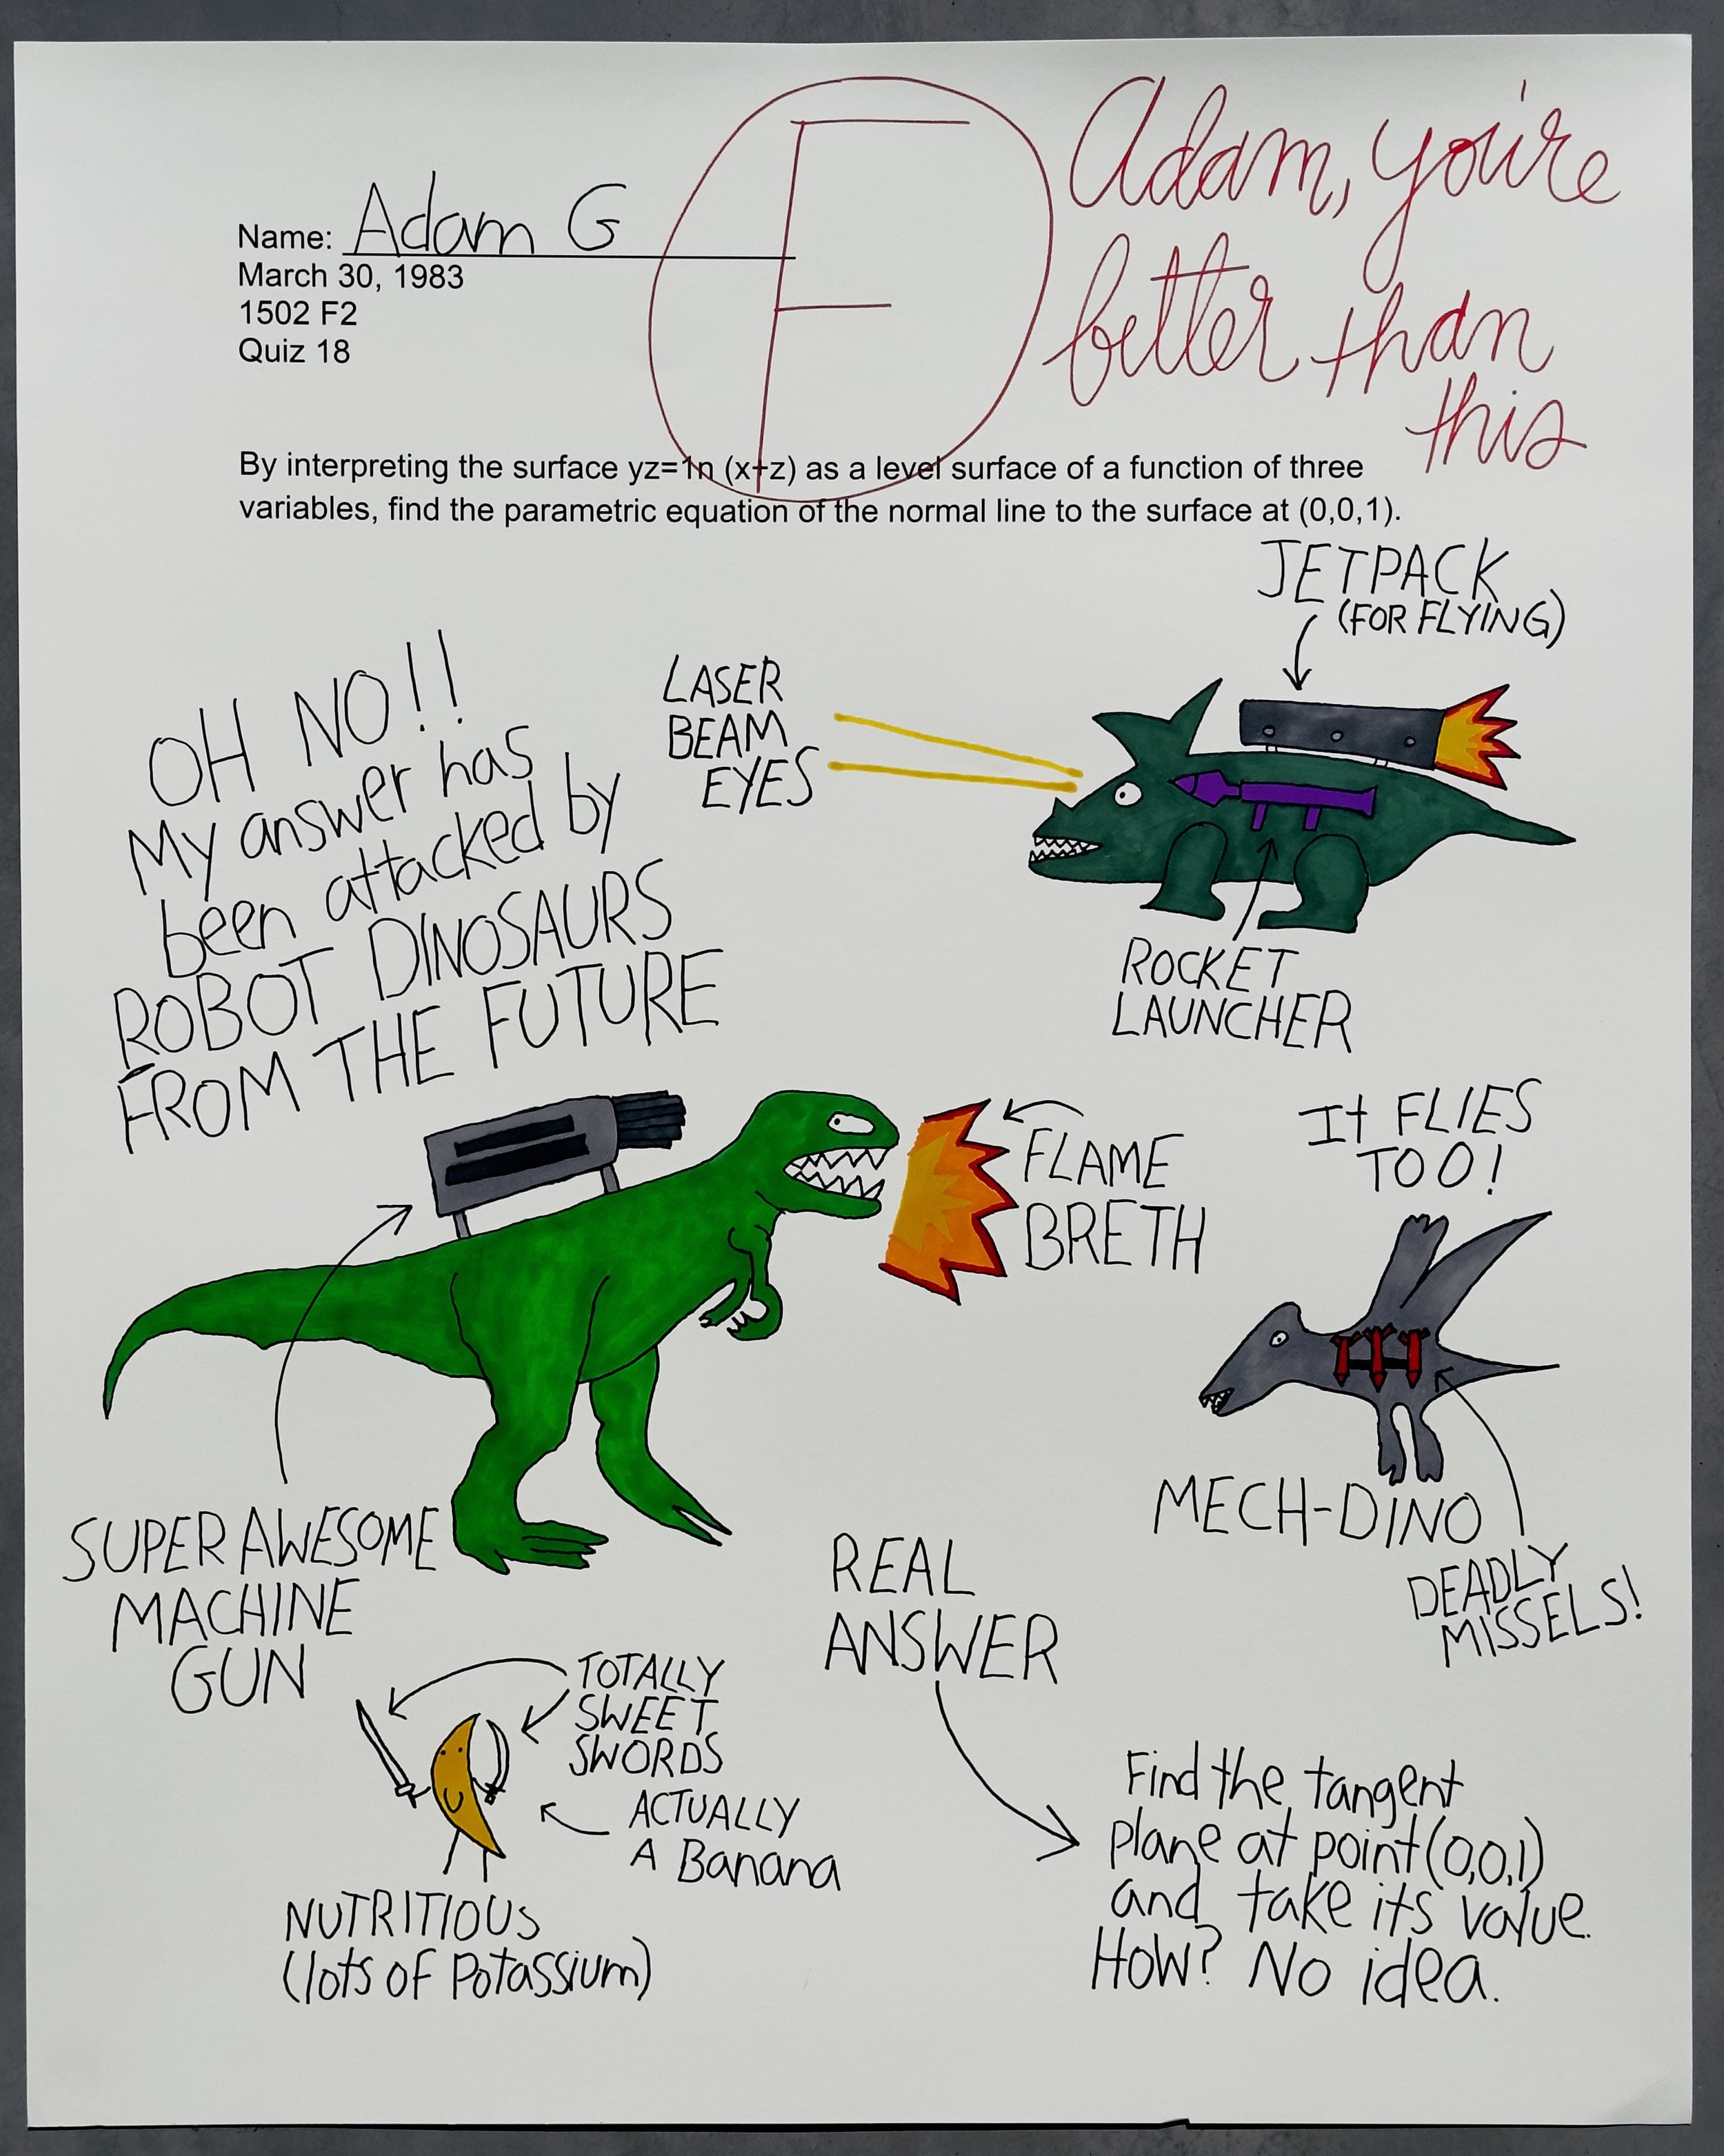 Adam, you're
better than
this
F
Name: Adam G
March 30, 1983
1502 F2
Quiz 18
By interpreting the surface yz=1n (x+z) as a level surface of a function of three
variables, find the parametric equation of the normal line to the surface at (0,0,1).
JETPACK
(FOR FLYING)
LASER
BEAM
EYES
OH NO!!
My answer has
been attacked by
ROBOT DINOSAURS
FROM THE FUTURE
ROCKET
LAUNCHER
FLAME
BRETH
It FLIES
TOO!
MECH-DINO
DEADLY
MISSELS!
SUPER AWESOME
MACHINE
GUN
REAL
ANSWER
TOTALLY
SWEET
SWORDS
ACTUALLY
A Banana
NUTRITIOUS
(lots of Potassium)
Find the tangent
plane at point (0,0,1)
and take its value.
How? No idea.